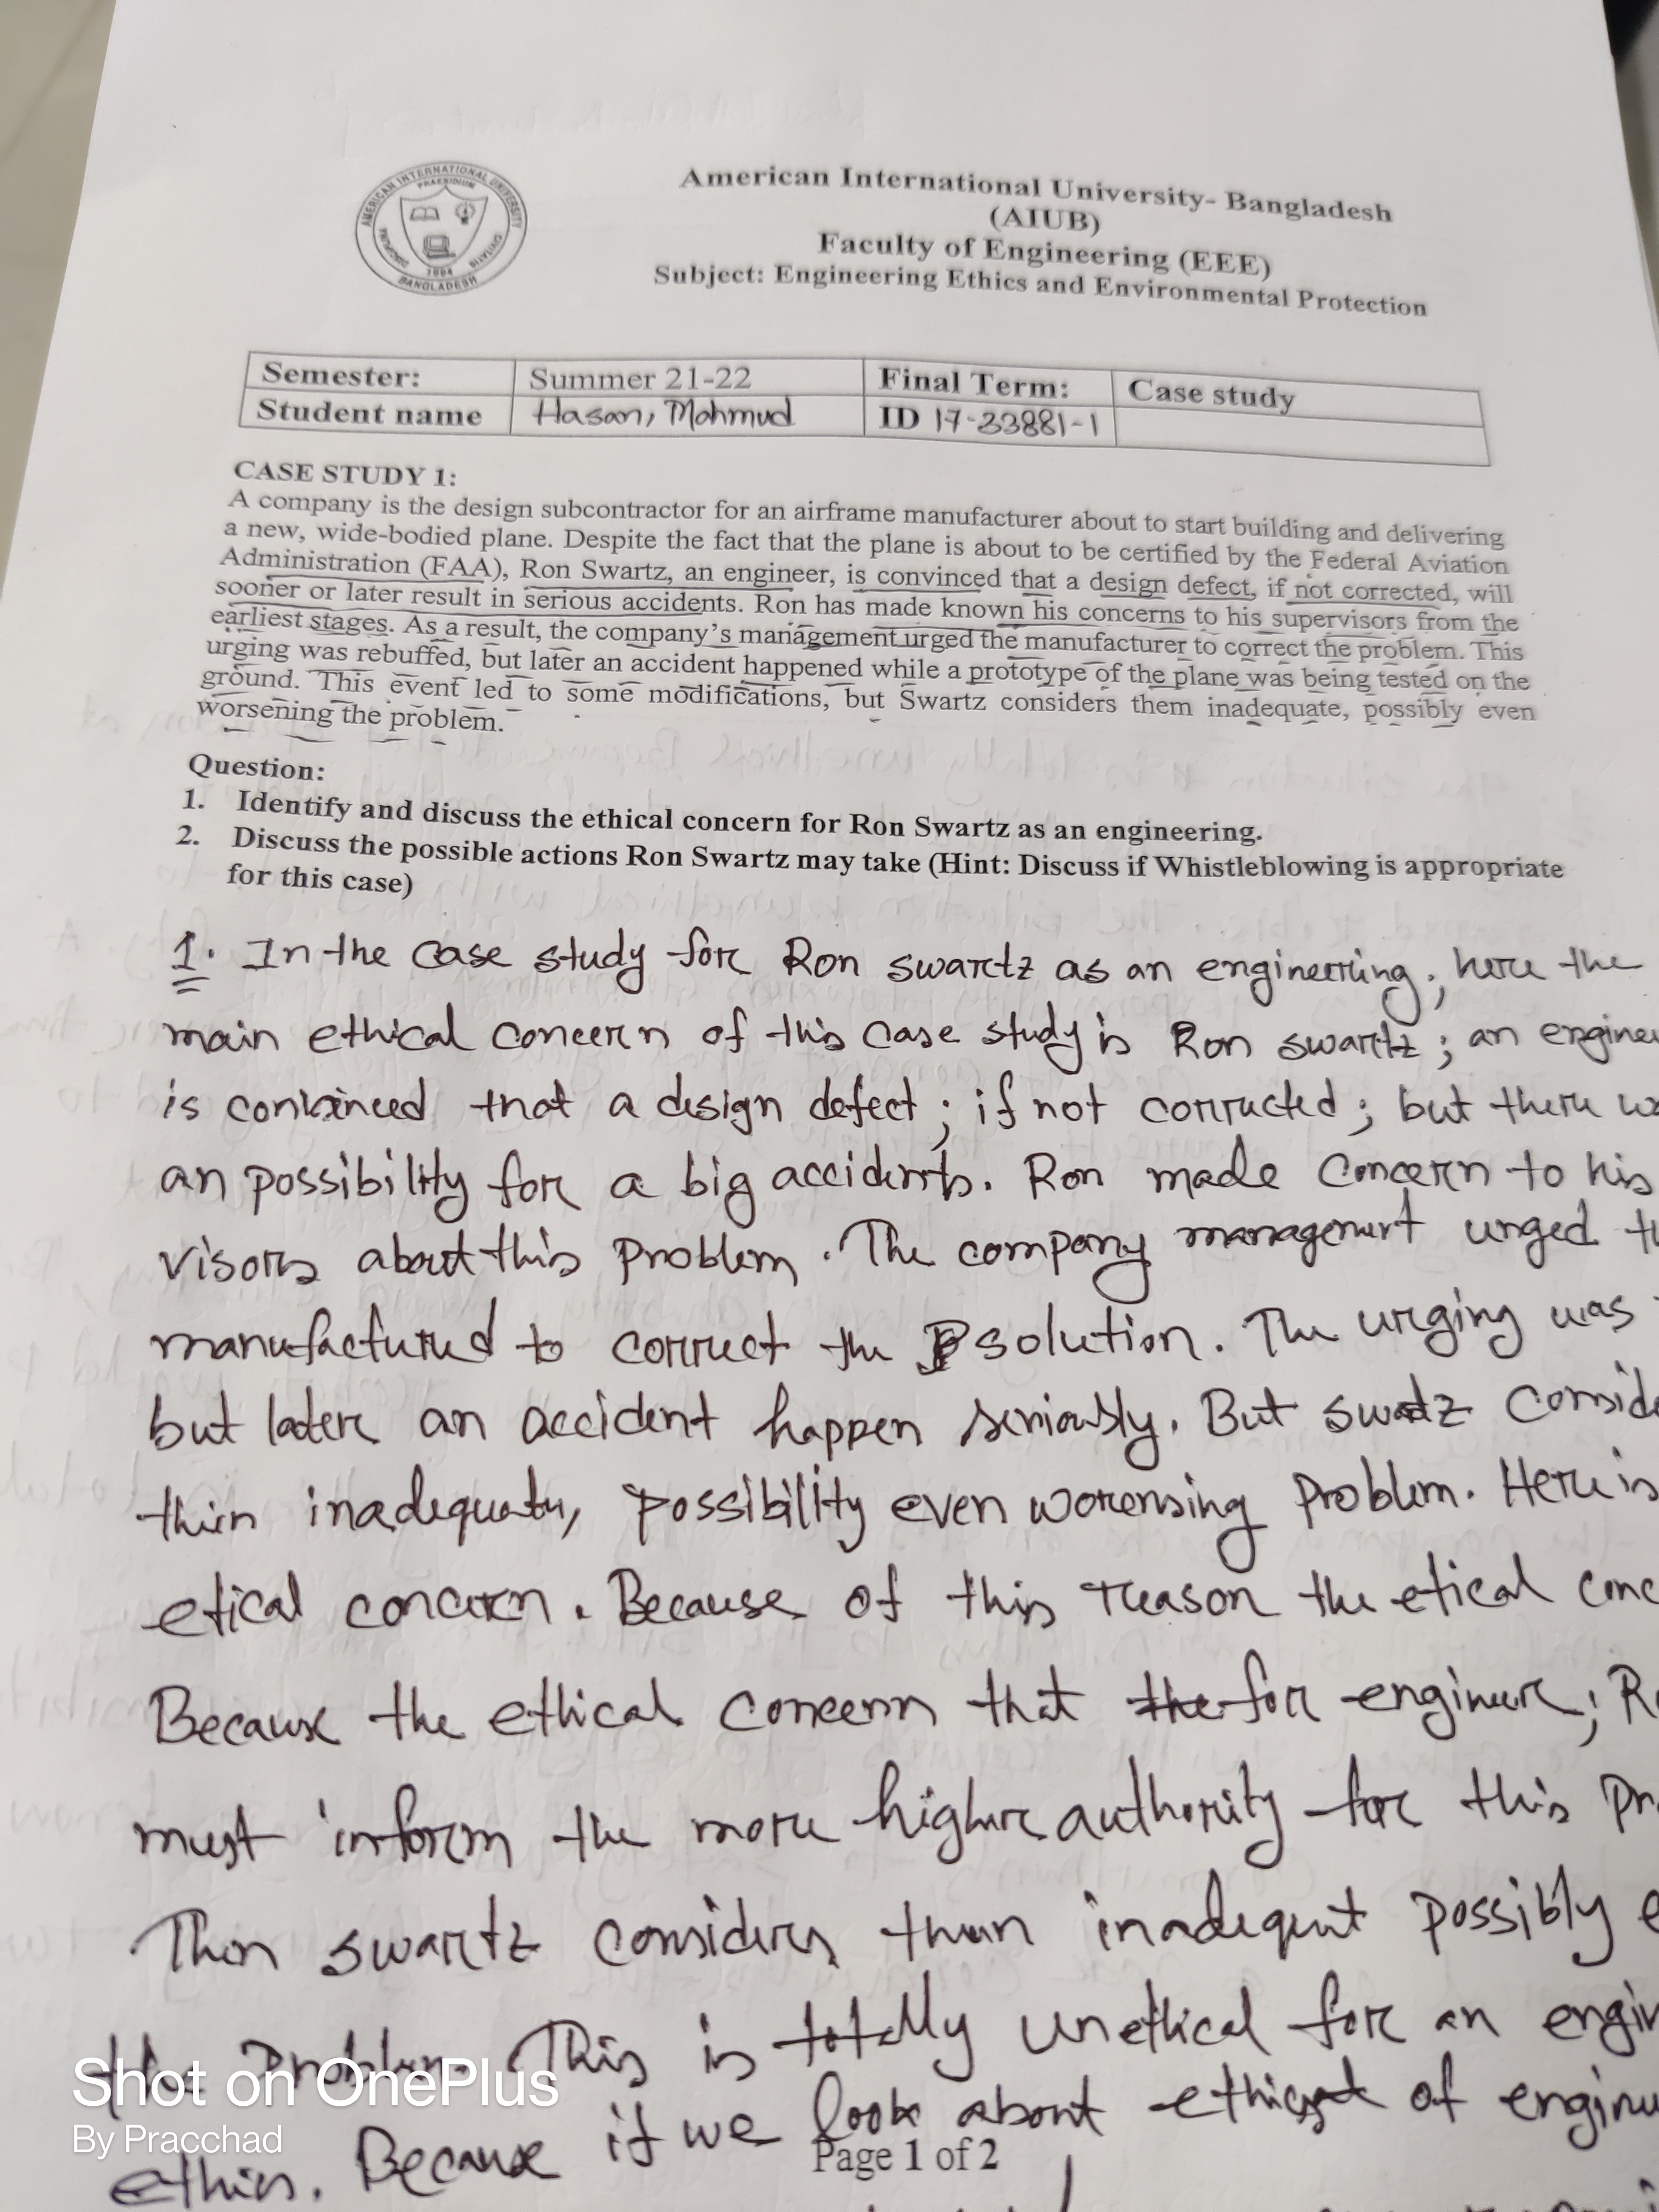 AMERICAN INTERNATIONAL UNIVERSITY
PRAESIDIUM
1994
BANGLADESH
American International University- Bangladesh
(AIUB)
Faculty of Engineering (EEE)
Subject: Engineering Ethics and Environmental Protection
Semester: Summer 21-22 Final Term: Case study
Student name Hasan, Mahmud ID 17-33881-1
CASE STUDY 1:
A company is the design subcontractor for an airframe manufacturer about to start building and delivering
a new, wide-bodied plane. Despite the fact that the plane is about to be certified by the Federal Aviation
Administration (FAA), Ron Swartz, an engineer, is convinced that a design defect, if not corrected, will
sooner or later result in serious accidents. Ron has made known his concerns to his supervisors from the
earliest stages. As a result, the company's management urged the manufacturer to correct the problem. This
urging was rebuffed, but later an accident happened while a prototype of the plane was being tested on the
ground. This event led to some modifications, but Swartz considers them inadequate, possibly even
worsening the problem.
Question:
1. Identify and discuss the ethical concern for Ron Swartz as an engineering.
2. Discuss the possible actions Ron Swartz may take (Hint: Discuss if Whistleblowing is appropriate
for this case)
1. In the case study for Ron swartz as an engineering, here the
main ethical concern of this case study is Ron swartz; an
is convinced that a design defect; if not corrected; but there
an possibility for a big accidents. Ron made concern to his
visors about this problem. The company management urged
manufactured to correct the solution. The urging was
but later an accident happen seriously. But
inadequate, possibility even worensing problem. Here is
etical concern. Because of this reason the etical
Because the ethical concern that the for engineer;
must inform the more higher authority for this
swartz considers them inadequent possibly
the problem. This is totally unethical for an
ethics. Because if we look about of
Page 1 of 2
Shot on OnePlus
By Pracchad